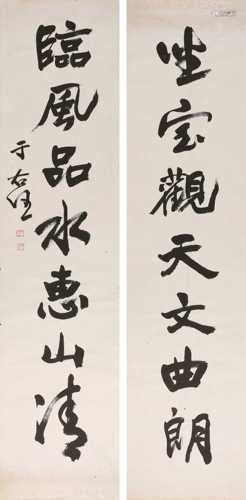 坐宝觀天文曲朗
臨風品水惠山清
于右任